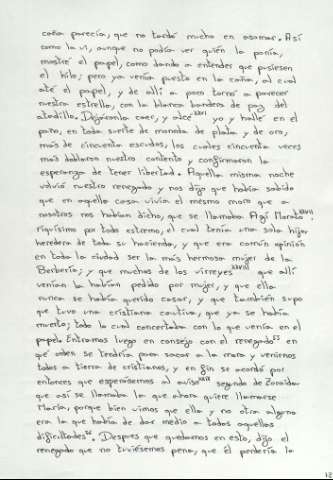 caña parecía, que no tardó mucho en asomar. Así
como la vi, aunque no podía ver quién la ponía,
mostré el papel, como dando a entender que pusiesen
el hilo; pero ya venía puesto en la caña, al cual
até el papel, y de allí a poco tornó a parecer
nuestra estrella, con la blanca bandera de paz del
atadillo. Dejáronla caer, y alcé yo y hallé en el
paño, en toda suerte de moneda de plata y de oro,
más de cincuenta escudos, los cuales cincuenta veces
más doblaron nuestro contento y confirmaron la
esperanza de tener libertad. Aquella misma noche
volvió nuestro renegado y nos dijo que había sabido
que en aquella casa vivía el mesmo moro que a
nosotros nos habían dicho, que se llamaba Agi Morato,
riquísimo por todo estremo, el cual tenía una sola hija,
heredera de toda su hacienda, y que era común opinión
en toda la ciudad ser la más hermosa mujer de la
Berbería; y que muchos de los virreyes que allí
venían la habían pedido por mujer, y que ella
nunca se había querido casar, y que también supo
que tuvo una cristiana cautiva, que ya se había
muerto; todo lo cual concertaba con lo que venía en el
papel. Entramos luego en consejo con el renegado en
qué orden se tendría para sacar a la mora y venirnos
todos a tierra de cristianos, y en fin se acordó por
entonces que esperásemos al aviso segundo de Zoraida,
que así se llamaba la que ahora quiere llamarse
María, porque bien vimos que ella y no otra alguna
era la que había de dar medio a todas aquellas
dificultades. Después que quedamos en esto, dijo el
renegado que no tuviésemos pena, que él perdería la